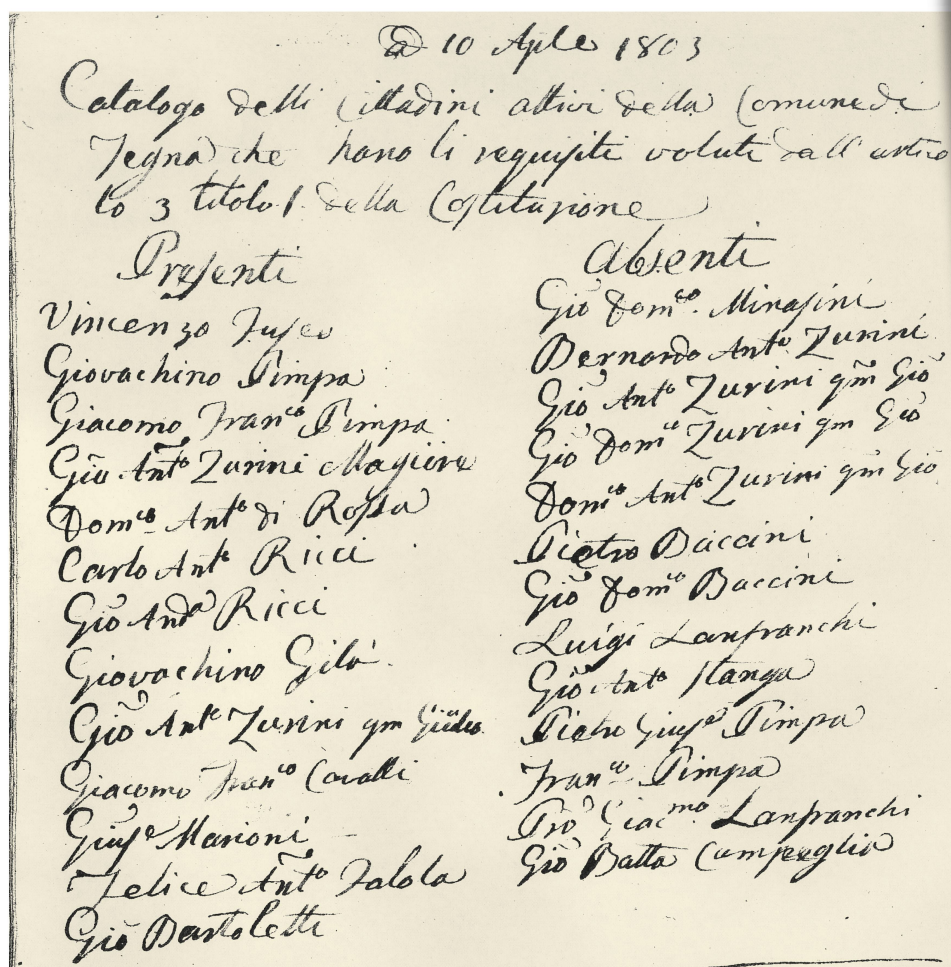 Ad 10 Aple 1803
Catalogo delli Cittadini attivi della Comune di
Tegna che hano li requisiti voluti dall' artico
lo 3 titolo 1 della Costituzione
Presenti
Vincenzo Fuseo
Giovachino Pimpa
Giacomo Franco Pimpa
Gio Anto Zurini Magiore
Domco Anto di Rossa
Carlo Anto Ricci
Gio Anda Ricci
Giovachino Gilà
Gio Anto Zurini qm
Giacomo Franco Cavalli
Giuse Marioni
Felice Anto Falola
Gio Bartoletti
Absenti
Gio Domco Minasini
Bernardo Anto Zurini
Gio Anto Zurini qm Gio
Gio Domco Zurini qm Gio
Domco Anto Zurini qm Gio
Pietro Baccini
Gio Domco Baccini
Luigi Lanfranchi
Gio Anto Stanga
Pietro Giuse Pimpa
Franco Pimpa
Pro Giacmo Lanfranchi
Gio Batta Campeglio